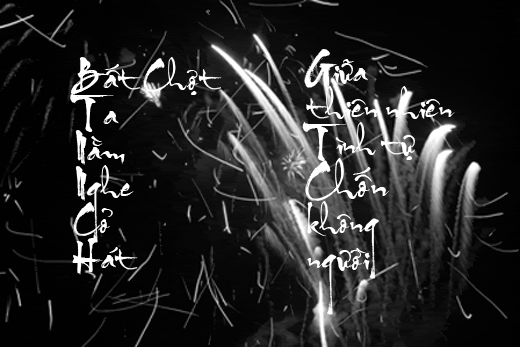 Bất Chợt
Ta
Nằm
Nghe
Cỏ
Hát
Giữa
thiên nhiên
Tình tự
Chốn
không
người